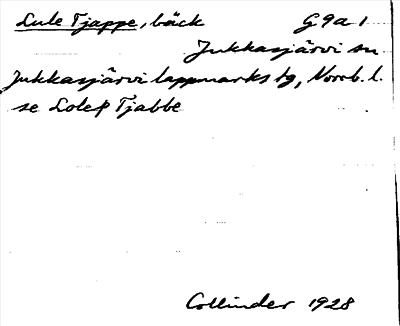 Lule Tjappe, bäck G9a1
Jukkasjärvi sn
Jukkasjärvi lappmarks tg, Norrb. l.
se Lolep Tjabbe
Collinder 1928